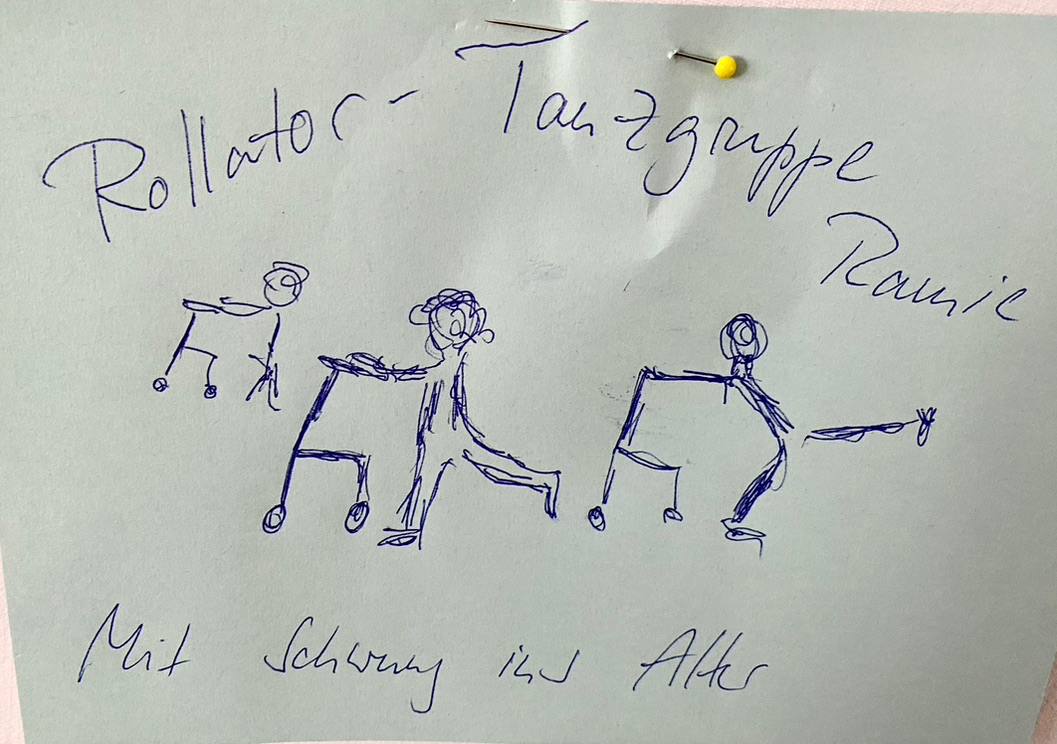 Rollator-Tanzgruppe
Ramie
Mit Schwung ins Alter